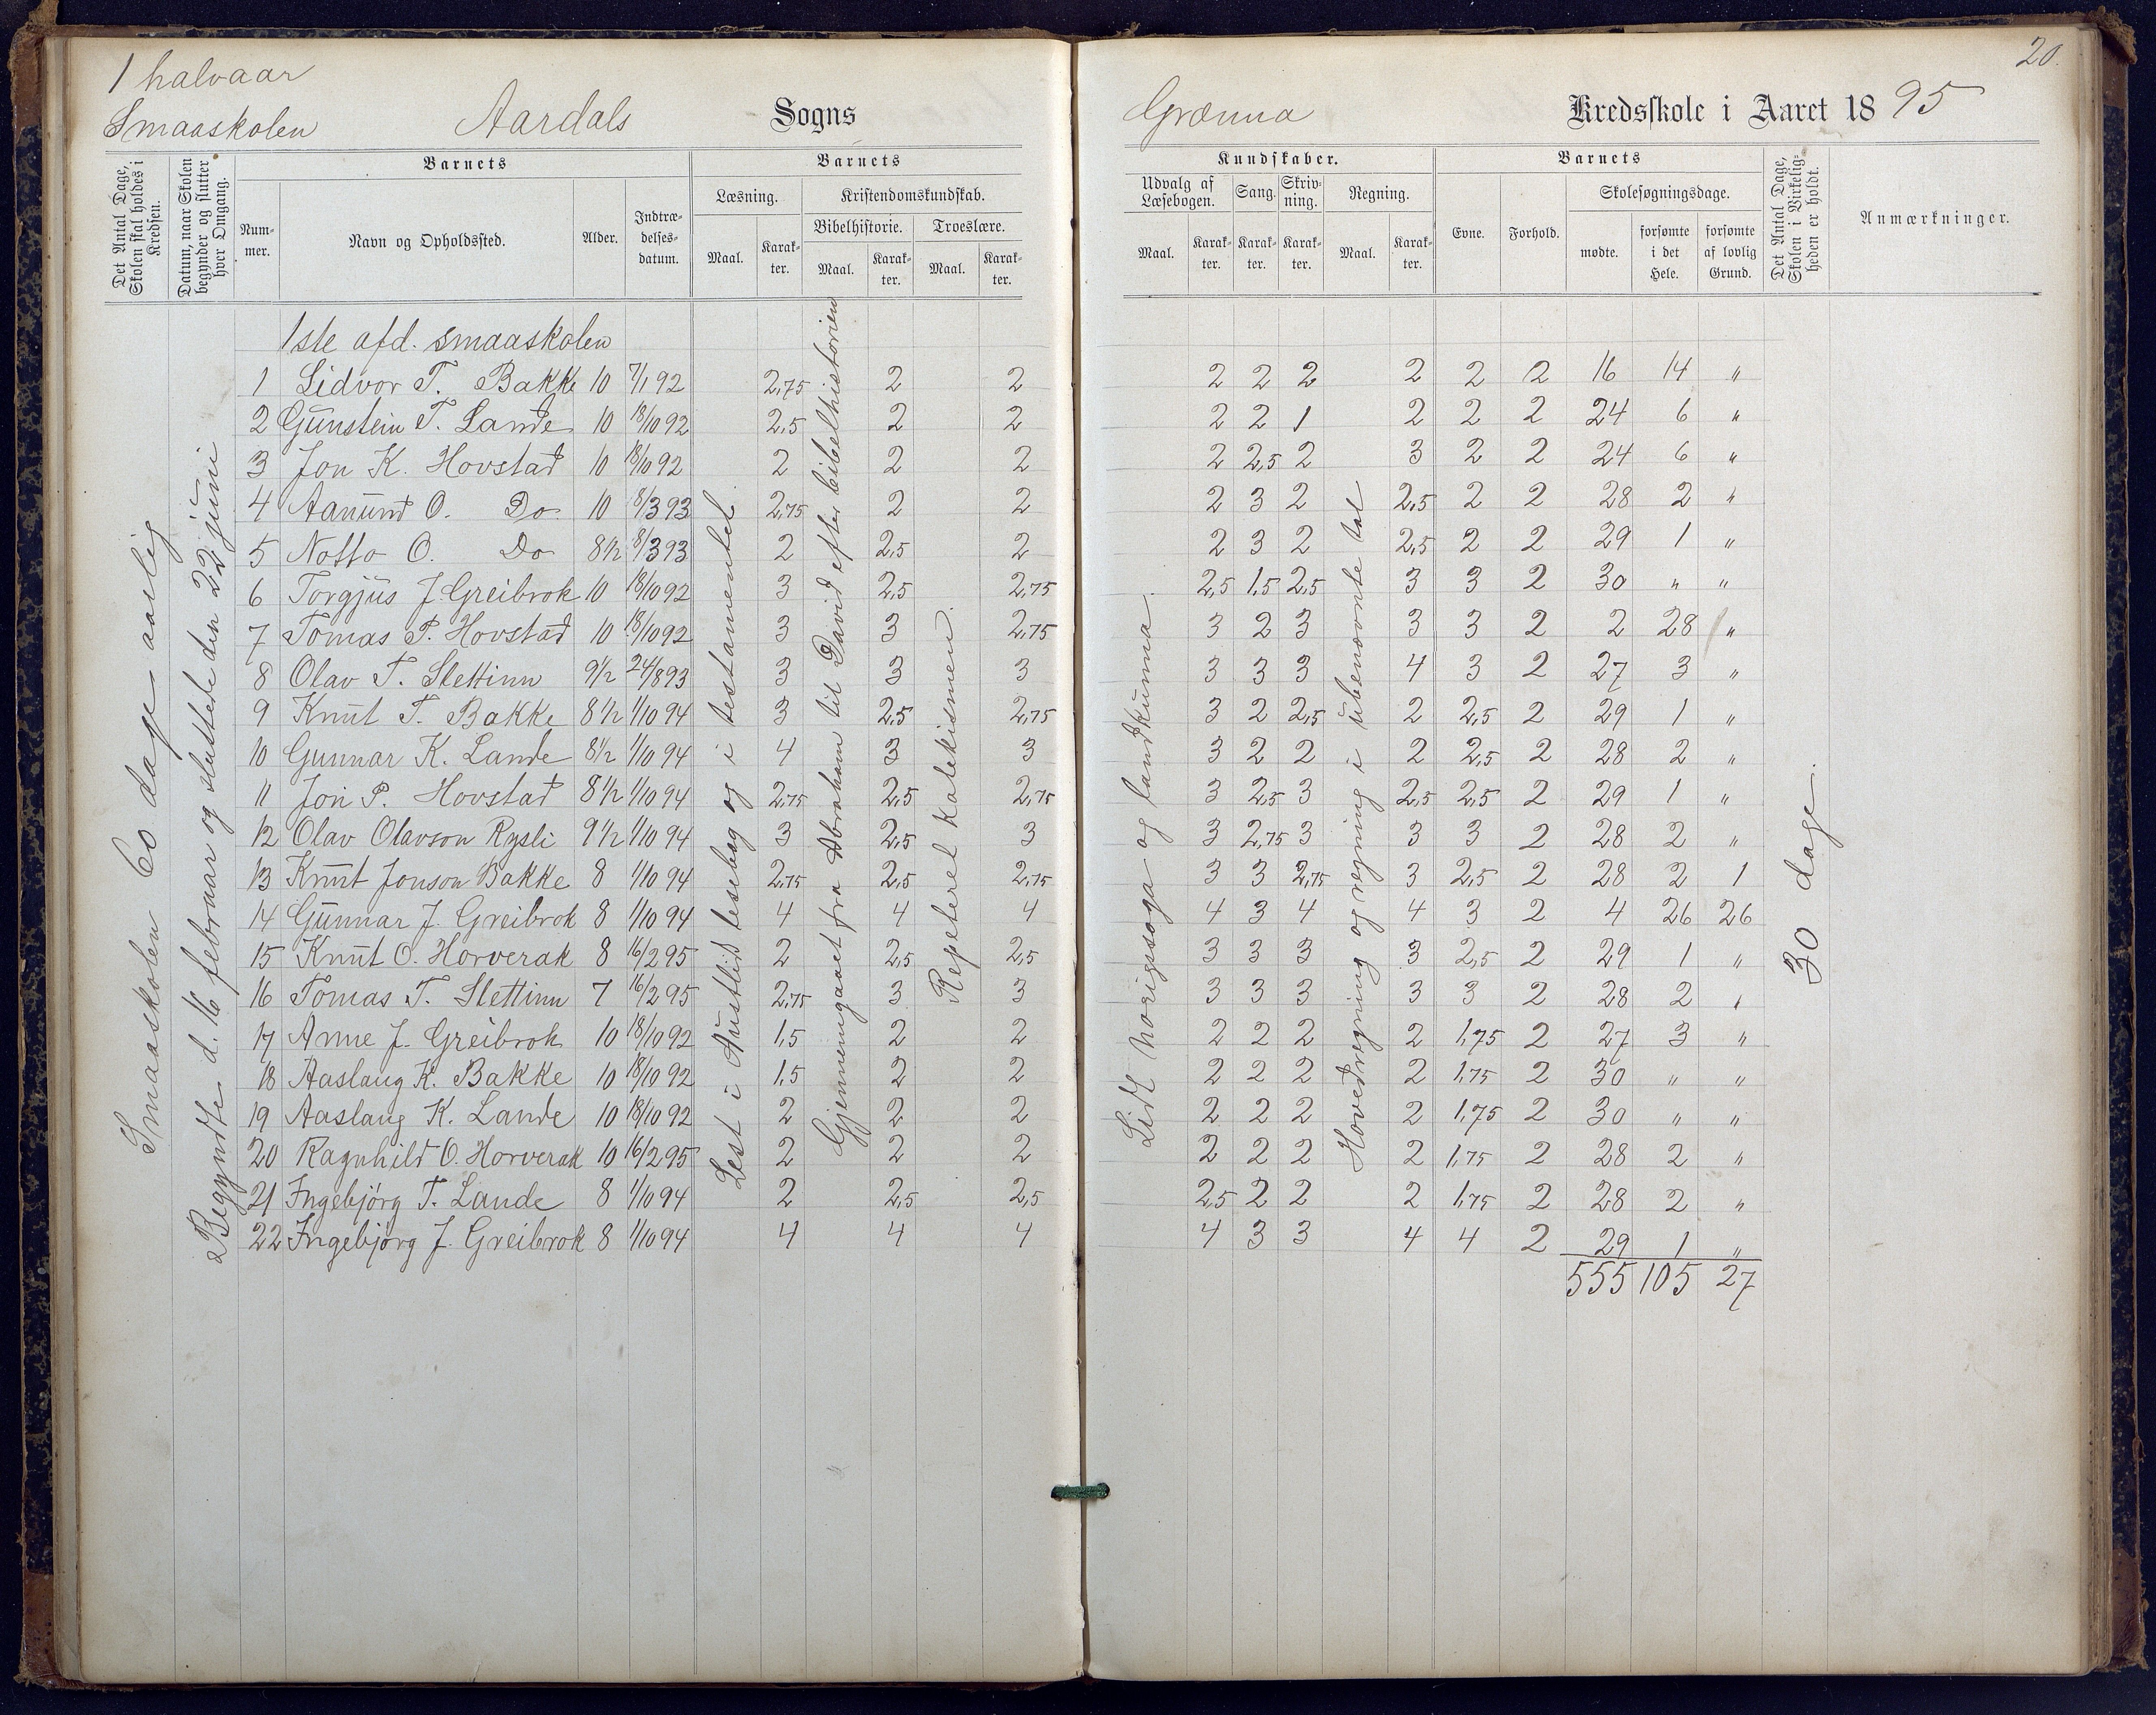 1 halvaar
Smaaskolen Aardals Sogns
Det Antal Dage, Skolen skal holdes i Kredsen.
Datum, naar Skolen begynder og slutter hver Omgang.
Barnets
Nummer.
Navn og Opholdssted.
Alder.
Indtrædelsesdatum.
Barnets
Læsning.
Maal.
Karakter.
Kristendomskundskab.
Bibelhistorie.
Maal.
Karakter.
Troeslære.
Maal.
Karakter.
1ste afd. smaaskolen
1 Lidvor T. Bakke 10 7/1 92 2,75 2 2
2 Gunstein T. Lande 10 18/10 92 2,5 2 2
3 Jon K. Hovstad 10 18/10 92 2 2 2
4 Aanund O. Do 10 8/3 93 2,75 2 2
5 Notto O. Do 8½ 8/3 93 2 2,5 2
6 Torgjus J. Greibrok 10 18/10 92 3 2,5 2,75
7 Tomas P. Hovstad 10 18/10 92 3 3 2,75
8 Olav T. Slettinn 9½ 24/8 93 3 3 3
9 Knut T. Bakke 8½ 1/10 94 3 2,5 2,75
10 Gunnar K. Lande 8½ 1/10 94 4 3 3
11 Jon P. Hovstad 8½ 1/10 94 2,75 2,5 2,75
12 Olav Olavson Rysli 9½ 1/10 94 3 2,5 3
13 Knut Jonson Bakke 8 1/10 94 2,75 2,5 2,75
14 Gunnar J. Greibrok 8 1/10 94 4 4 4
15 Knut O. Horverak 8 16/2 95 2 2,5 2,5
16 Tomas T. Slettinn 7 16/2 95 2,75 3 3
17 Anne J. Greibrok 10 18/10 92 1,5 2 2
18 Aaslaug K. Bakke 10 18/10 92 1,5 2 2
19 Aaslaug K. Lande 10 18/10 92 2 2 2
20 Ragnhild O. Horverak 10 16/2 95 2 2 2
21 Ingebjörg T. Lande 8 1/10 94 2 2,5 2,5
22 Ingebjörg J. Greibrok 8 1/10 94 4 4 4
Smaaskolen 60 dage aarlig
Begyndte d. 16 februar og sluttede den 22 juni
Lest i Austlids lesebog og i testamentet
Gjennemgaaet fra Abraham til David efter bibelhistorien
Repeteret katekismen.
20.
Grænna Kredsskole i Aaret 1895
Kundskaber.
Udvalg af Læsebogen.
Maal.
Karakter.
Sang.
Karakter.
Skrivning.
Karakter.
Regning.
Maal.
Karakter.
Barnets
Evne.
Forhold.
Skolesøgningsdage.
mødte.
forsømte i det Hele.
forsømte af lovlig Grund.
Det Antal Dage, Skolen i Virkeligheden er holdt.
Anmærkninger.
2 2 2 2 2 2 16 14 "
2 2 1 2 2 2 24 6 "
2 2,5 2 3 2 2 24 6 "
2 3 2 2,5 2 2 28 2 "
2 3 2 2,5 2 2 29 1 "
2,5 1,5 2,5 3 3 2 30 " "
3 2 3 3 3 2 2 28 "
3 3 3 4 3 2 27 3 "
3 2 2,5 2 2,5 2 29 1 "
3 2 2 2 2,5 2 28 2 "
3 2,5 3 2,5 2,5 2 29 1 "
3 2,75 3 3 3 2 28 2 "
3 3 2,75 3 2,5 2 28 2 1
4 3 4 4 3 2 4 26 26
3 3 3 3 2,5 2 29 1 "
3 3 3 3 3 2 28 2 "
2 2 2 2 1,75 2 27 3 "
2 2 2 2 1,75 2 30 " "
2 2 2 2 1,75 2 30 " "
2 2 2 2 1,75 2 28 2 "
2,5 2 2 2 1,75 2 28 2 "
4 3 3 4 4 2 29 1 "
555 105 27
Lidt norigssoga og landkunna.
Hovedregning og regning i ubenævnte tal
30 dage.